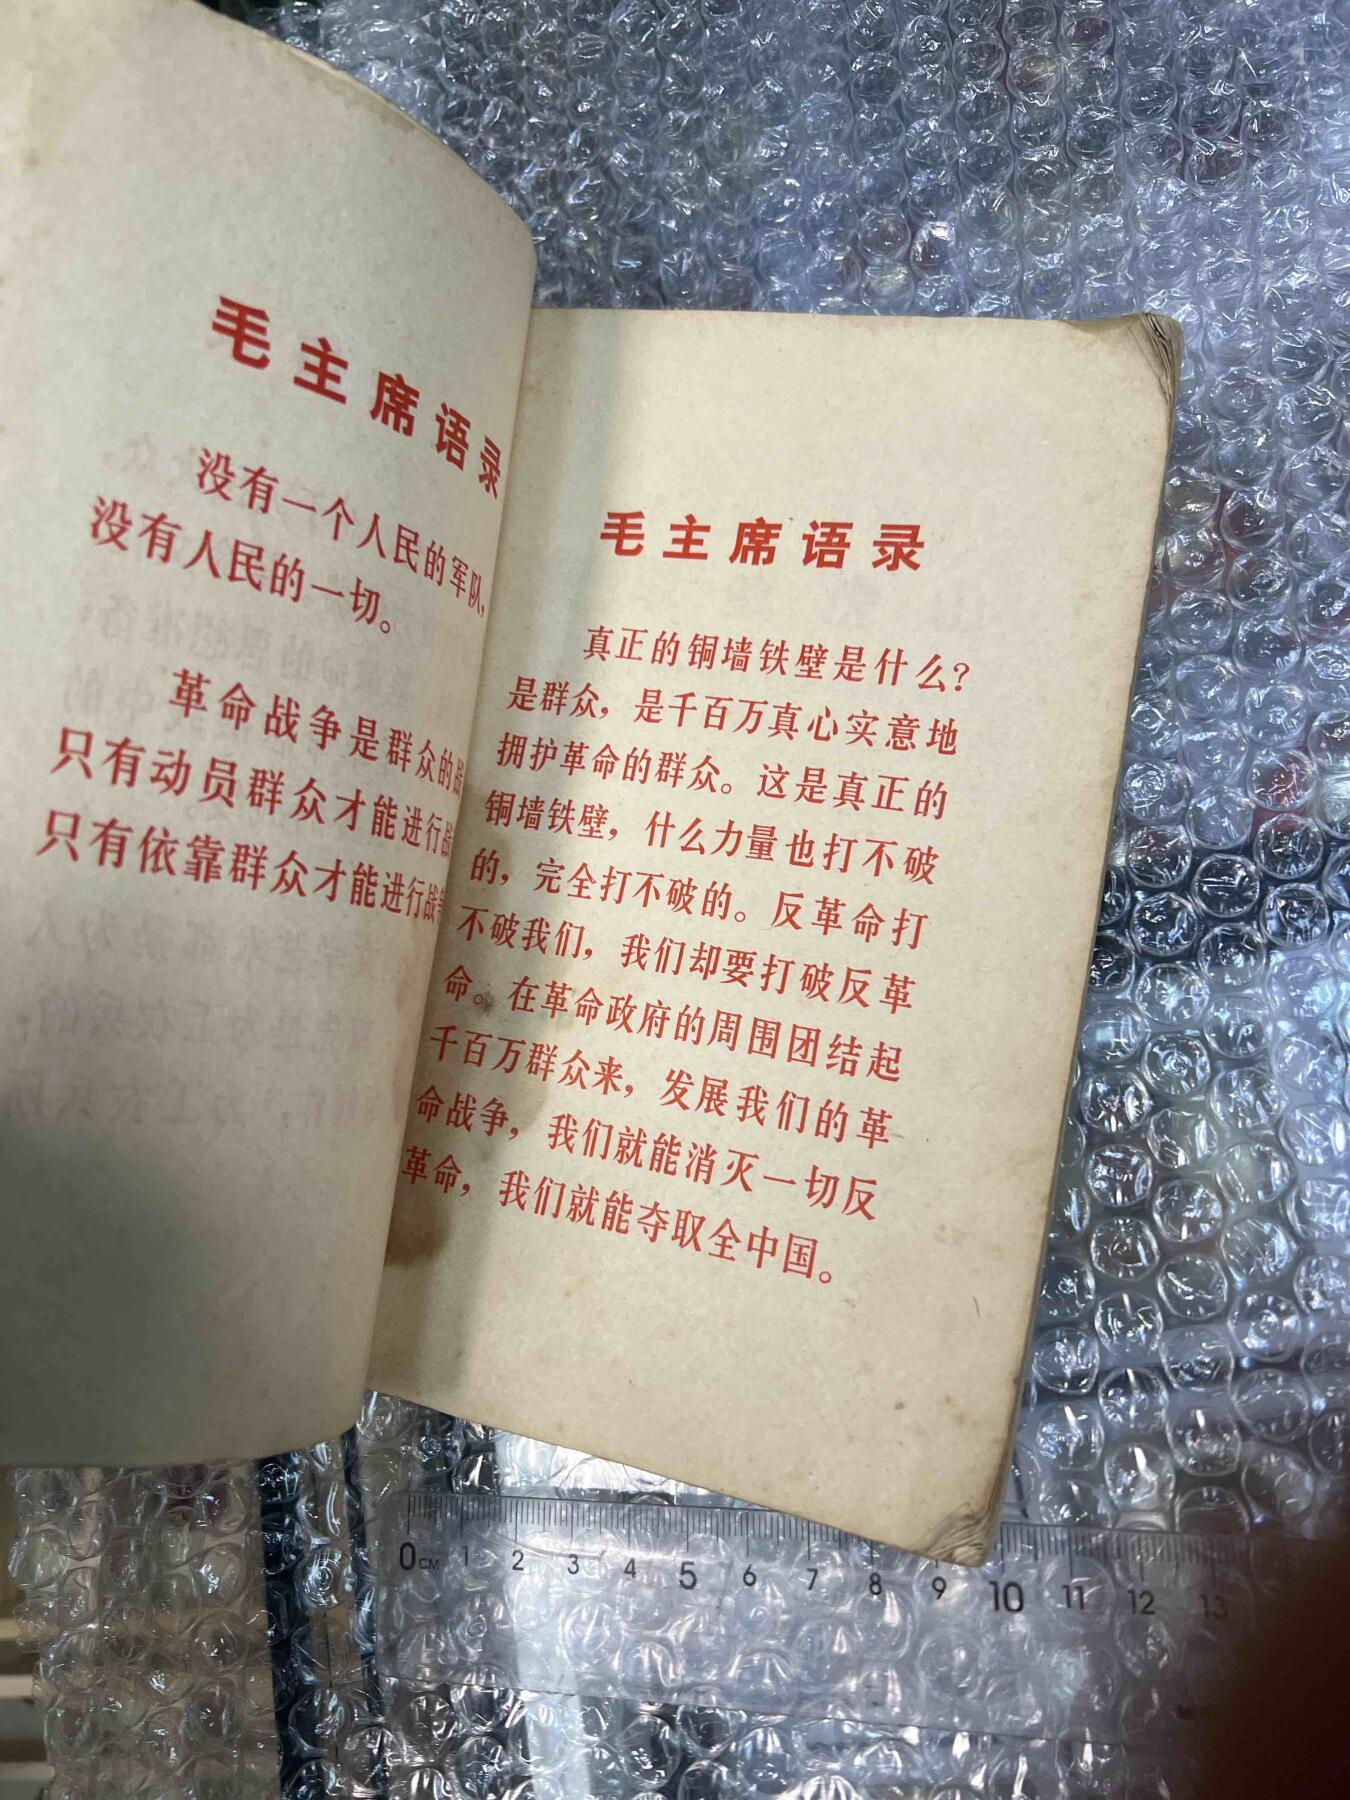 毛主席语录
没有一个人民的军队，
没有人民的一切。
革命战争是群众的战
只有动员群众才能进行战
只有依靠群众才能进行战争
毛主席语录
真正的铜墙铁壁是什么？
是群众，是千百万真心实意地
拥护革命的群众。这是真正的
铜墙铁壁，什么力量也打不破
的，完全打不破的。反革命打
不破我们，我们却要打破反革
命。在革命政府的周围团结起
千百万群众来，发展我们的革
命战争，我们就能消灭一切反
革命，我们就能夺取全中国。
0CM 1 2 3 4 5 6 7 8 9 10 11 12 13